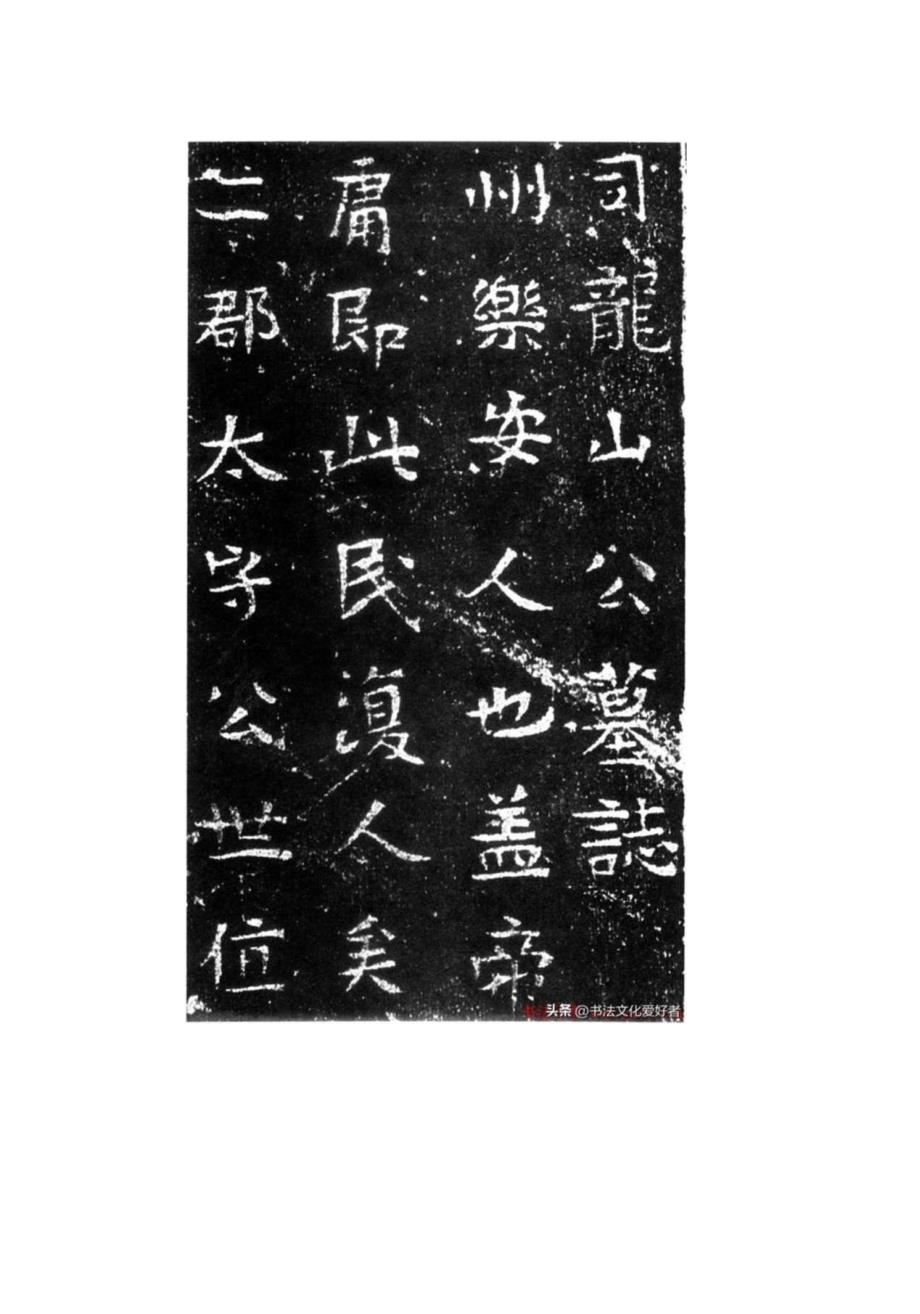 司龍山公墓誌
州樂安人也盖帝
庸即此民復人矣
二郡太守公世位
头条 @书法文化爱好者